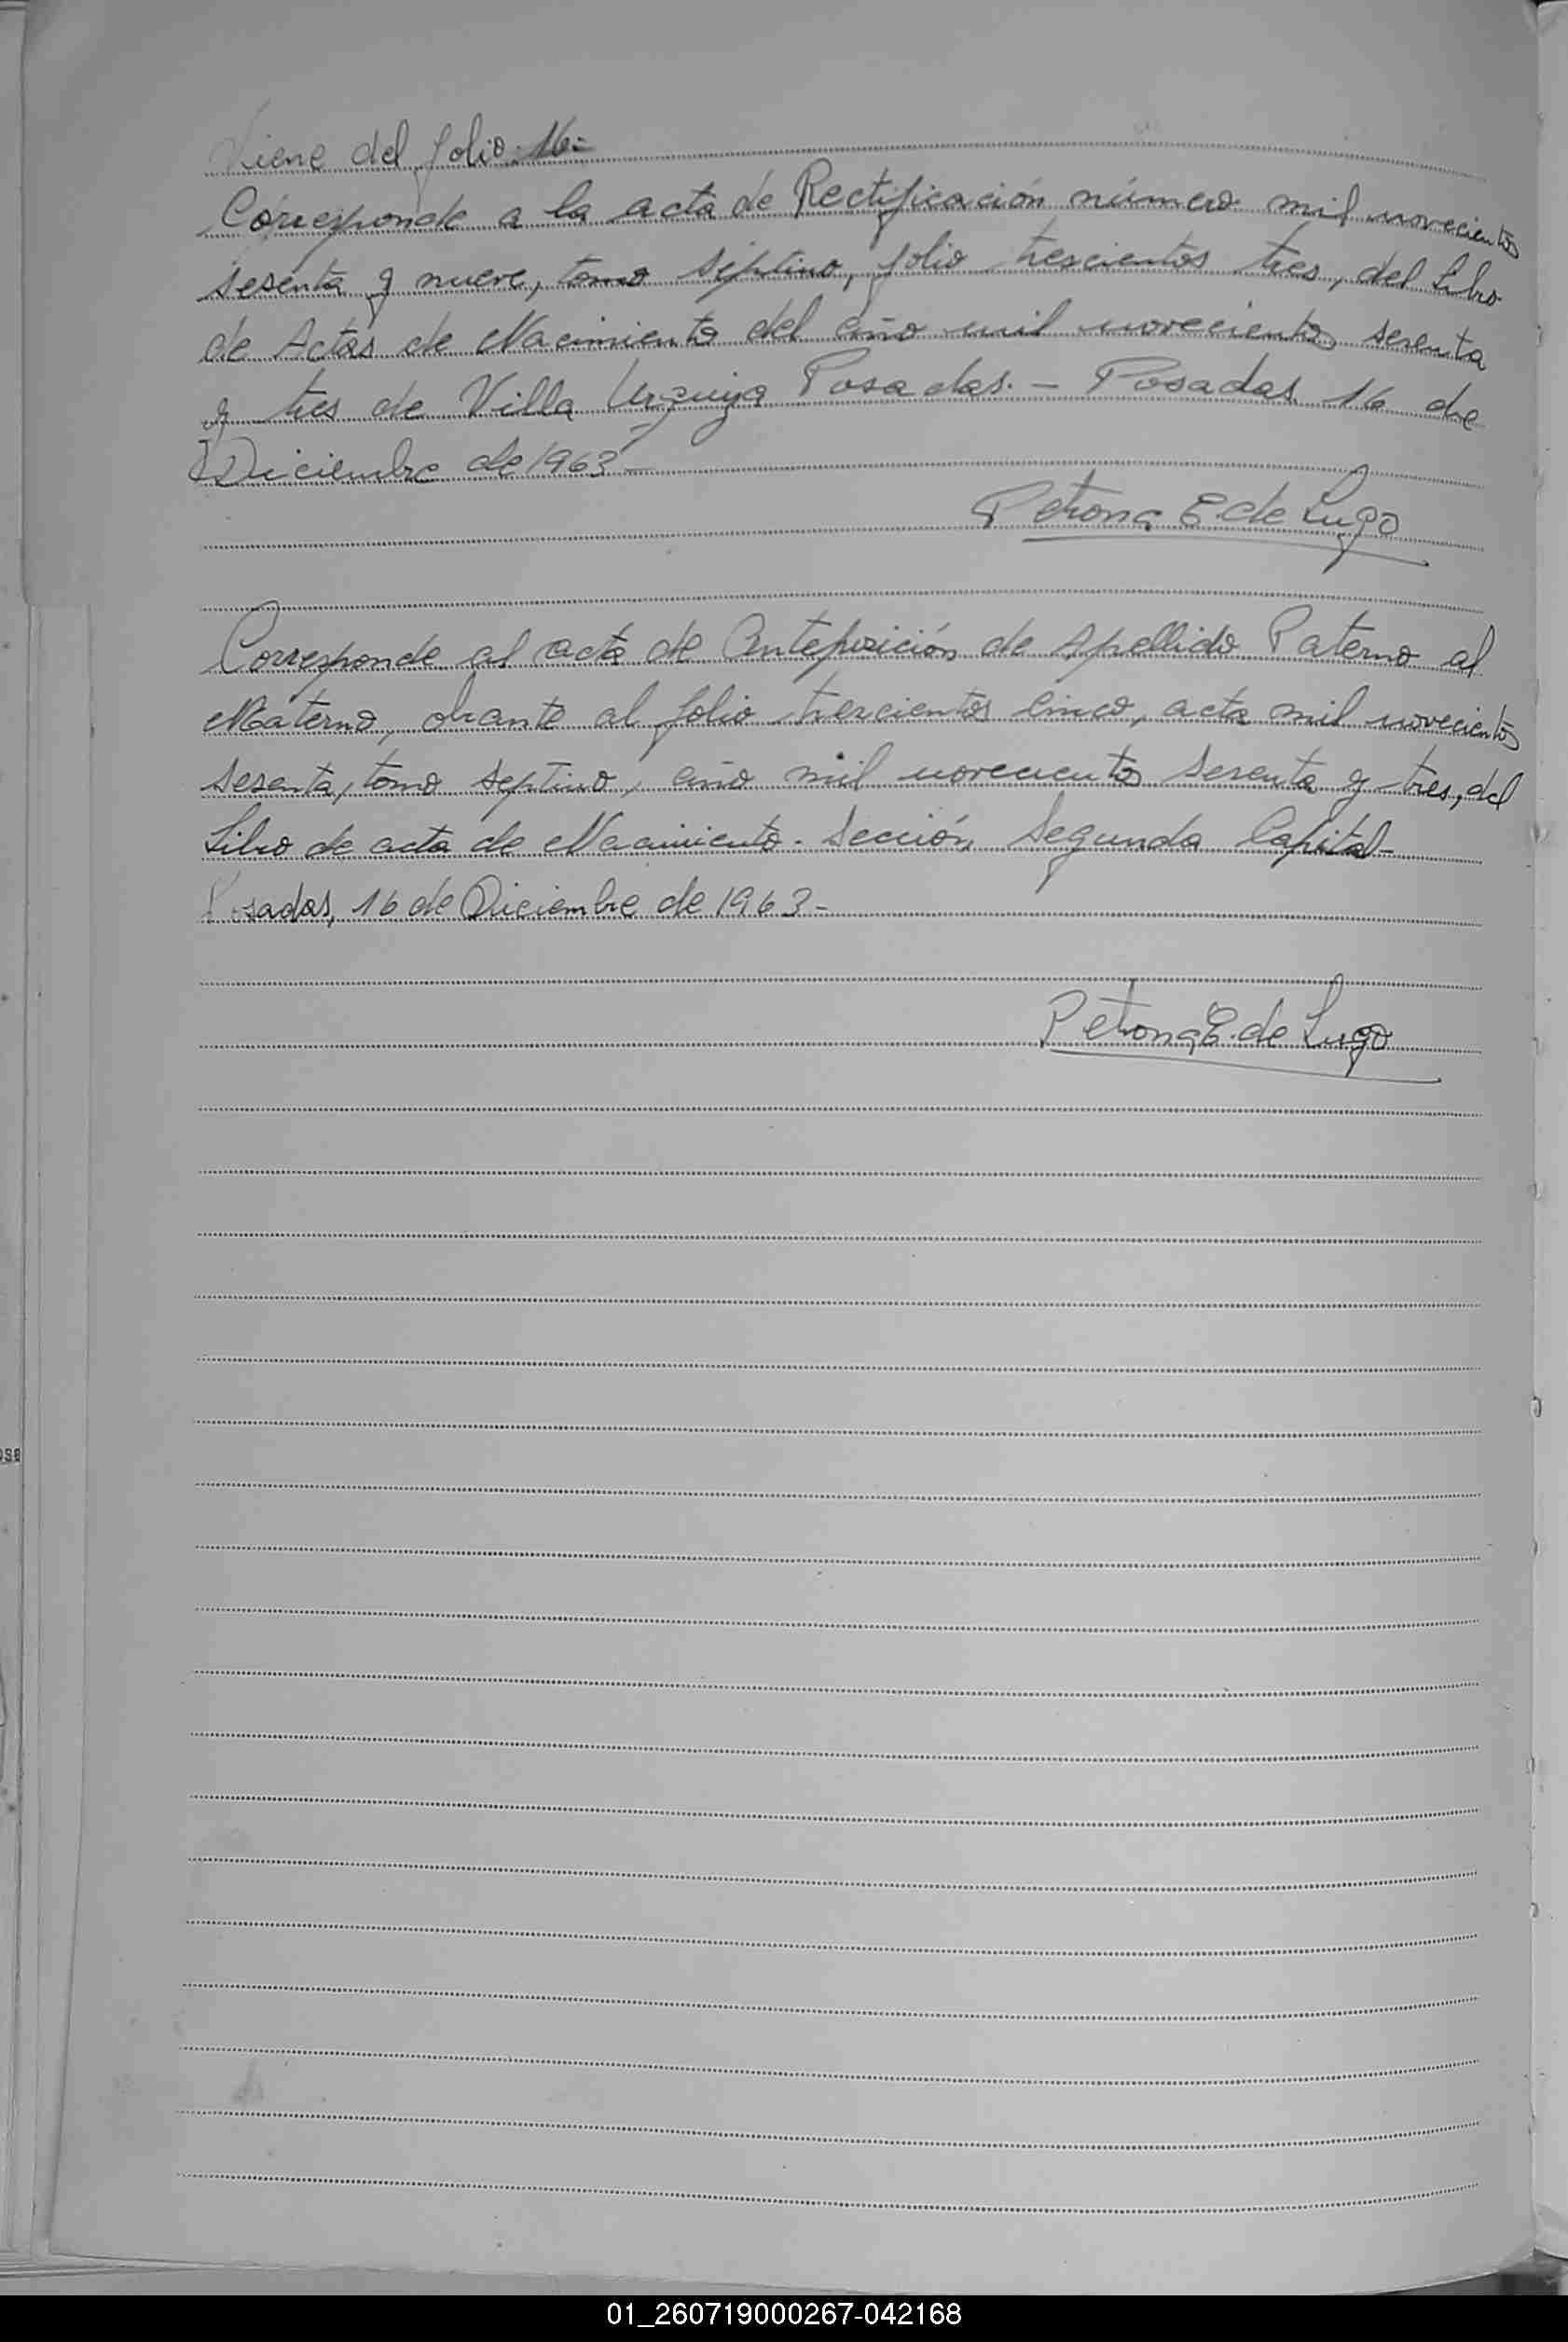 Viene del folio 16=
Corresponde a la acta de Rectificación número mil novecientos
sesenta y nueve, tomo séptimo, folio trescientos tres, del Libro
de Actas de Nacimiento del año mil novecientos sesenta
y tres de Villa Urquiza Posadas. - Posadas 16 de
Diciembre de 1963 -
Petrona E. de Lugo
Corresponde al acta de Anteposición de Apellido Paterno al
Materno, obrante al folio trescientos cinco, acta mil novecientos
sesenta, tomo septimo, año mil novecientos sesenta y tres, del
Libro de acta de Nacimiento. Sección Segunda Capital-
Posadas, 16 de Diciembre de 1963-
Petrona E. de Lugo
01_260719000267-042168